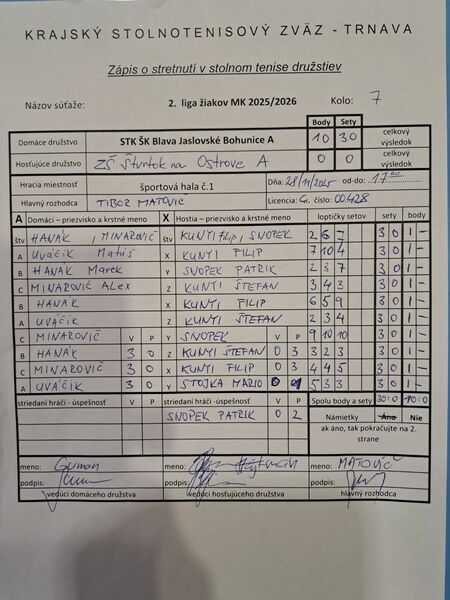 KRAJSKÝ STOLNOTENISOVÝ ZVÄZ - TRNAVA
Zápis o stretnutí v stolnom tenise družstiev
Názov súťaže: 2. liga žiakov MK 2025/2026 Kolo: 7
Body Sety
Domáce družstvo STK ŠK Blava Jaslovské Bohunice A 10 30 celkový výsledok
Hosťujúce družstvo ZŠ Štvrtok na Ostrove A 0 0 celkový výsledok
Hracia miestnosť športová hala č.1 Dňa: 28/11/2025 od-do: 17 00
Hlavný rozhodca TIBOR MATOVIČ Licencia č. 00428
A Domáci - priezvisko a krstné meno X Hostia - priezvisko a krstné meno loptičky setov sety body
štv HANÁK, MINAROVIČ štv KUNYI Filip, SNOPEK 2 6 7 3 0 1 -
A UVÁČIK Matúš X KUNYI FILIP 7 10 4 3 0 1 -
B HANÁK Marek Y SNOPEK PATRIK 2 3 7 3 0 1 -
C MINAROVIČ ALex Z KUNYI ŠTEFAN 3 4 3 3 0 1 -
B HANÁK X KUNYI FILIP 6 5 9 3 0 1 -
A UVÁČIK Z KUNYI ŠTEFAN 2 3 4 3 0 1 -
C MINAROVIČ V P Y SNOPEK V P 9 10 10 3 0 1 -
B HANÁK 3 0 Z KUNYI ŠTEFAN 0 3 3 2 3 3 0 1 -
C MINAROVIČ 3 0 X KUNYI FILIP 0 3 4 4 5 3 0 1 -
A UVÁČIK 3 0 Y STOJKA MARIO 0 1 5 3 3 3 0 1 -
striedaní hráči - úspešnosť V P striedaní hráči - úspešnosť V P Spolu body a sety 30:0 10:0
SNOPEK PATRIK 0 2 Námietky Áno Nie
ak áno, tak pokračujte na 2. strane
meno: meno: meno: MATOVIČ
podpis: podpis: podpis:
vedúci domáceho družstva vedúci hosťujúceho družstva hlavný rozhodca